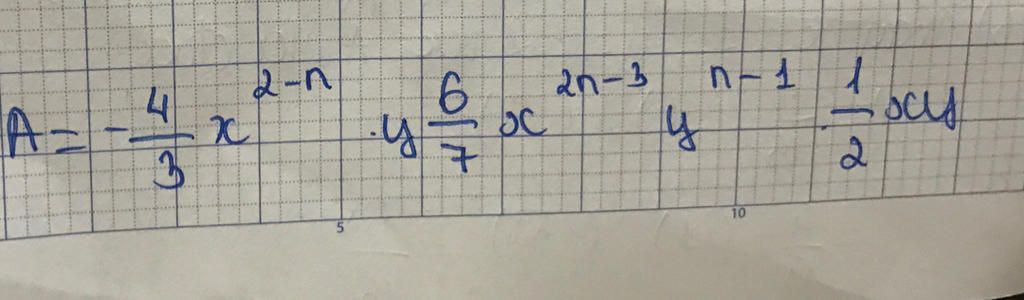 A = -4/3 x^{2-n} · y 6/7 x^{2n-3} y^{n-1} · 1/2 xy
5 10